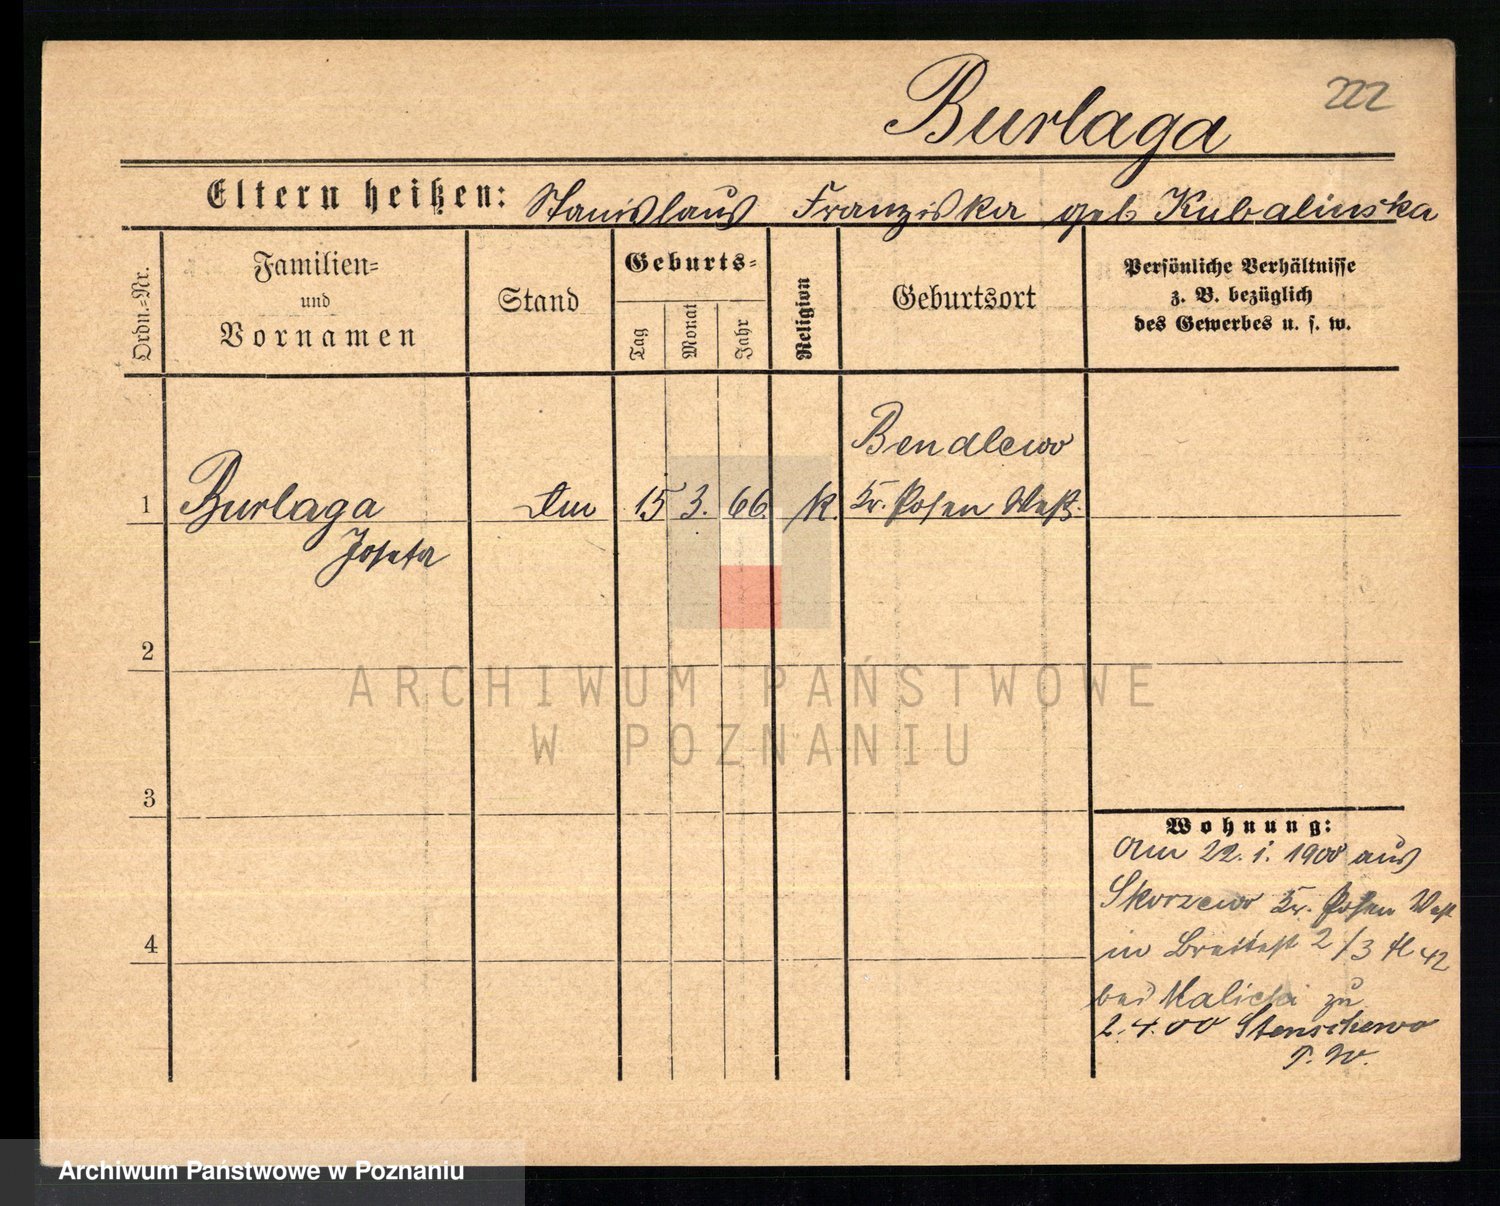 Burlaga
222
Eltern heißen: Stanislaus Franziska geb Kubalinska
Ordn.=Nr.
Familien=
und
Vornamen
Stand
Geburts=
Tag
Monat
Jahr
Religion
Geburtsort
Persönliche Verhältnisse
z. B. bezüglich
des Gewerbes u. s. w.
Bendlewo
1 Burlaga 15 3. 66. k. Kr. Posen West.
Josefa
2
ARCHIWUM PAŃSTWOWE
W POZNANIU
3
Wohnung:
Am 22. 1. 1900 aus
Skorzewo Kr. Posen West
4
in Breitest 2/3 42
bei Malicki zu
2.4.00 Stenschewo
P. W.
Archiwum Państwowe w Poznaniu